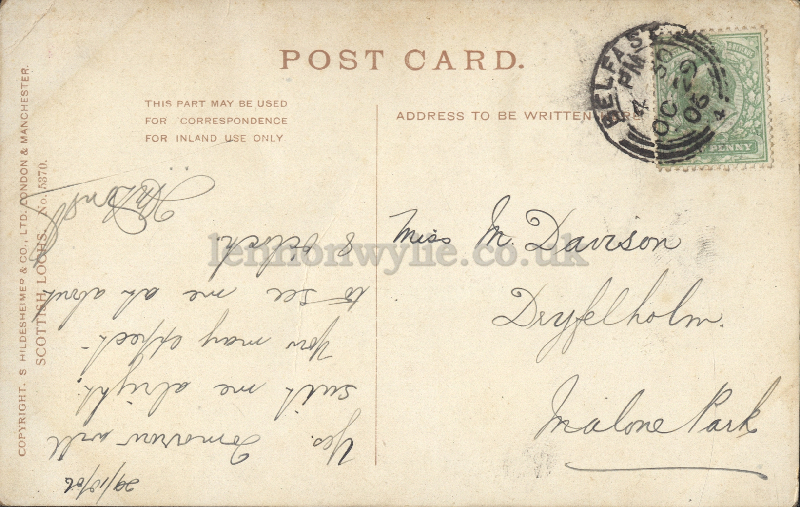 POST CARD.
THIS PART MAY BE USED
FOR CORRESPONDENCE
FOR INLAND USE ONLY.
ADDRESS TO BE WRITTEN
BELFAST
4 30 PM
OC 29
06
4
PENNY
Miss M. Davison
Dryfelholm.
Malone Park
29/10/06
Yes. Tomorrow will
suit me alright.
You may expect
to see me at about
8 o'clock.
COPYRIGHT. S HILDESHEIMER & CO., LTD. LONDON & MANCHESTER.
SCOTTISH LOCHS. No. 5370.
lennonwylie.co.uk